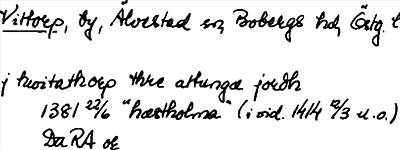 Vittorp, by, Älvestad sn, Bobergs hd, Östg. l
j hwitathorp thre attunga jordh
1381 22/6 "hæstholma" (i vid. 1414 12/3 u.o.)
Da RA or